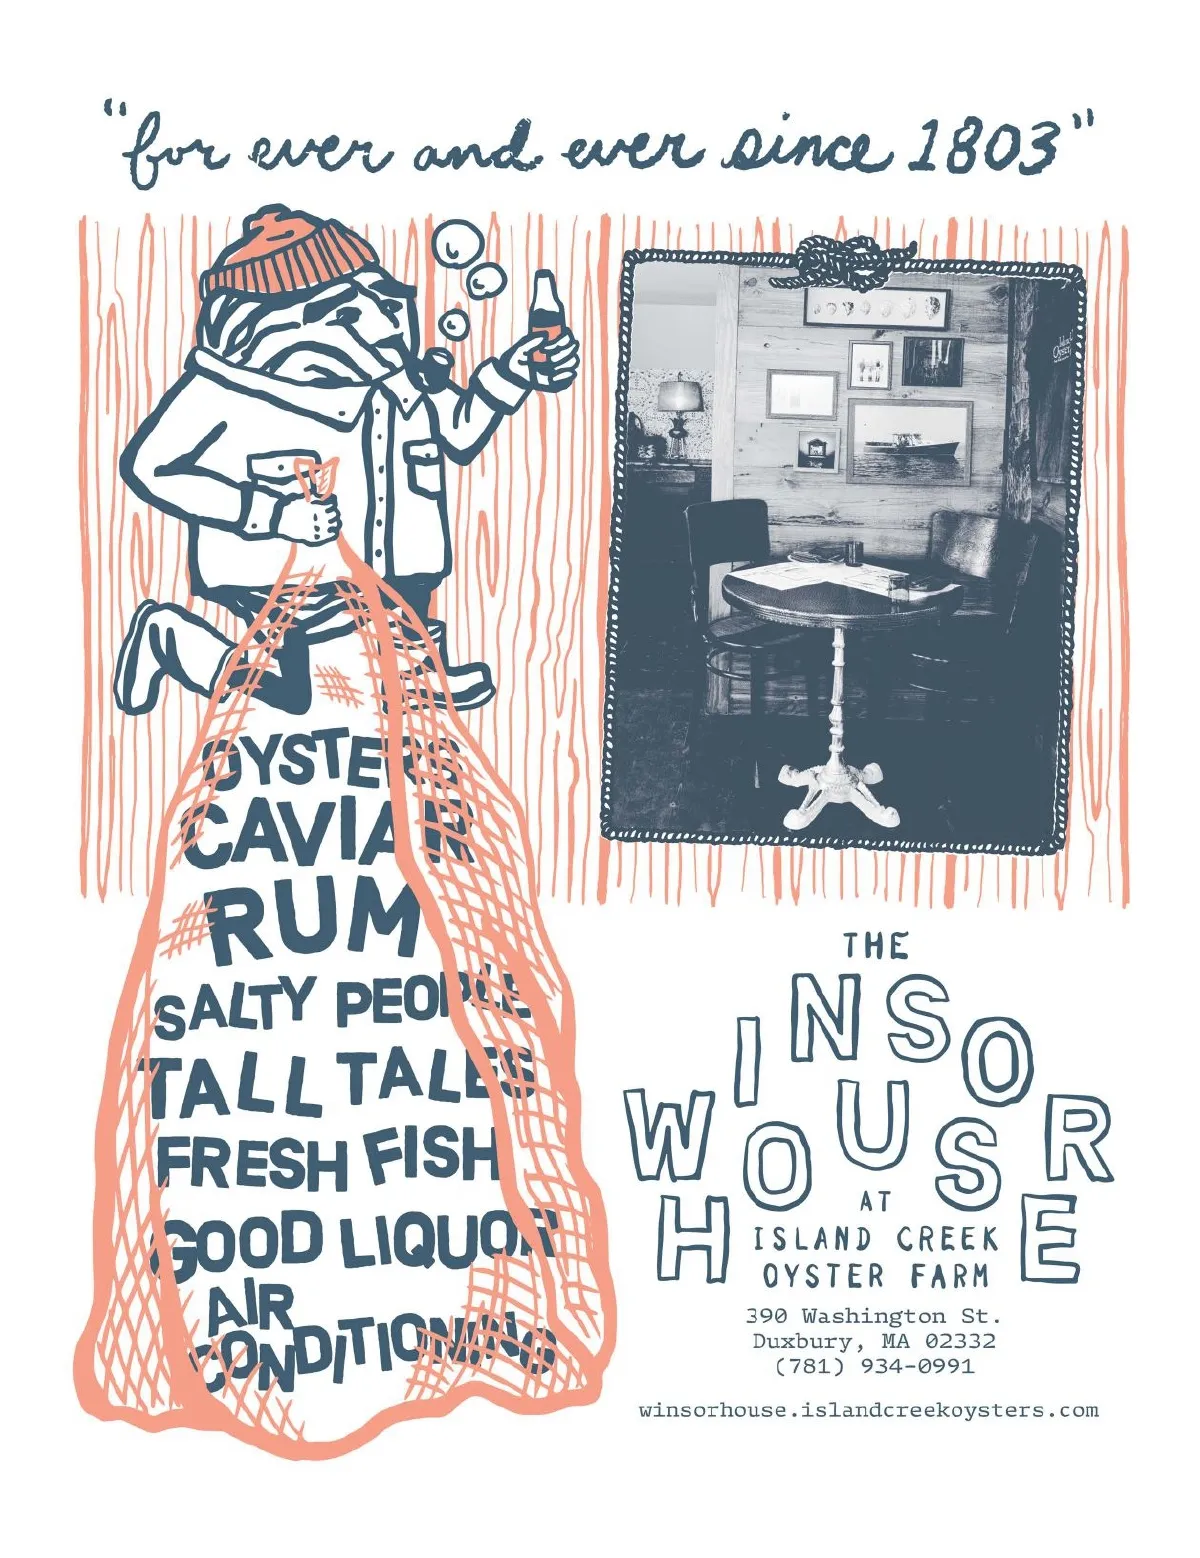 "for ever and ever since 1803"
OYSTERS
CAVIAR
RUM
SALTY PEOPLE
TALL TALES
FRESH FISH
GOOD LIQUOR
AIR
CONDITIONING
THE
WINSOR
HOUSE
AT
ISLAND CREEK
OYSTER FARM
390 Washington St.
Duxbury, MA 02332
(781) 934-0991
winsorhouse.islandcreekoysters.com